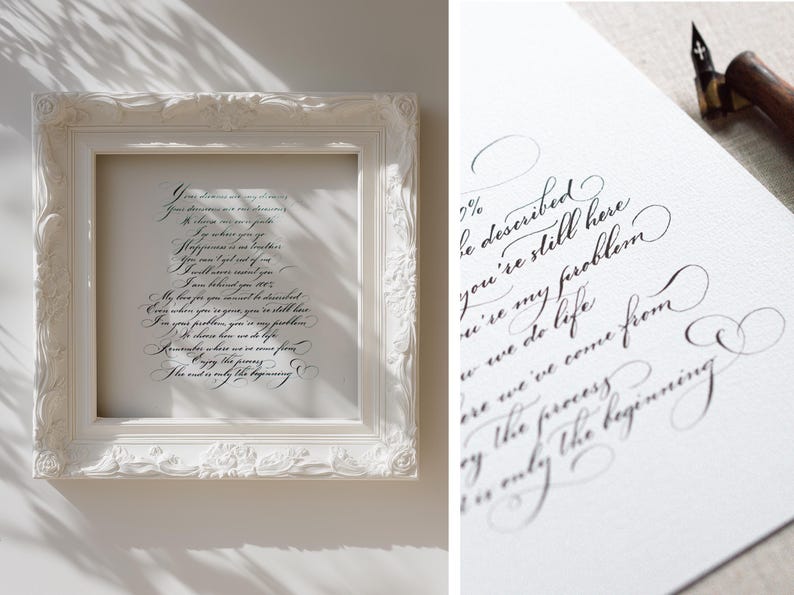 Your dreams are my dreams
Your decisions are our decisions
We choose our own path
I go where you go
Happiness is us together
You can't get rid of me
I will never resent you
I am behind you 100%
My love for you cannot be described
Even when you're gone, you're still here
I'm your problem, you're my problem
We choose how we do life
Remember where we've come from
Enjoy the process
The end is only the beginning
0%
be described
you're still here
you're my problem
w we do life
ere we've come from
oy the process
is only the beginning